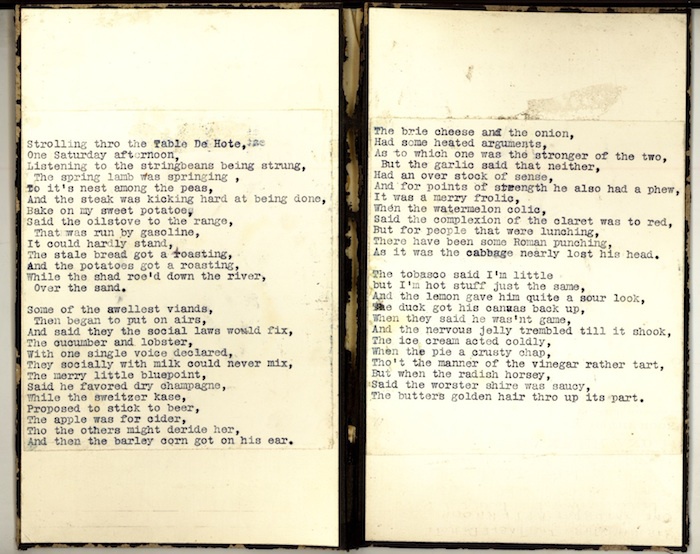 Strolling thro the Table De Hote,
One Saturday afternoon,
Listening to the stringbeans being strung,
The spring lamb was springing ,
To it's nest among the peas,
And the steak was kicking hard at being done,
Bake on my sweet potatoes
Said the oilstove to the range,
That was run by gasoline,
It could hardly stand,
The stale bread got a roasting,
And the potatoes got a roasting,
While the shad roe'd down the river,
Over the sand.
Some of the swellest viands,
Then began to put on airs,
And said they the social laws would fix,
The cucumber and lobster,
With one single voice declared,
They socially with milk could never mix,
The merry little bluepoint,
Said he favored dry champagne,
While the sweitzer kase,
Proposed to stick to beer,
The apple was for cider,
Tho the others might deride her,
And then the barley corn got on his ear.
The brie cheese and the onion,
Had some heated arguments,
As to which one was the stronger of the two,
But the garlic said that neither,
Had an over stock of sense,
And for points of strength he also had a phew,
It was a merry frolic,
When the watermelon colic,
Said the complexion of the claret was to red,
But for people that were lunching,
There have been some Roman punching,
As it was the cabbage nearly lost his head.
The tobasco said I'm little
but I'm hot stuff just the same,
And the lemon gave him quite a sour look,
The duck got his canvas back up,
When they said he was'nt game,
And the nervous jelly trembled till it shook,
The ice cream acted coldly,
When the pie a crusty chap,
Tho't the manner of the vinegar rather tart,
But when the radish horsey,
Said the worster shire was saucy,
The butters golden hair thro up its part.